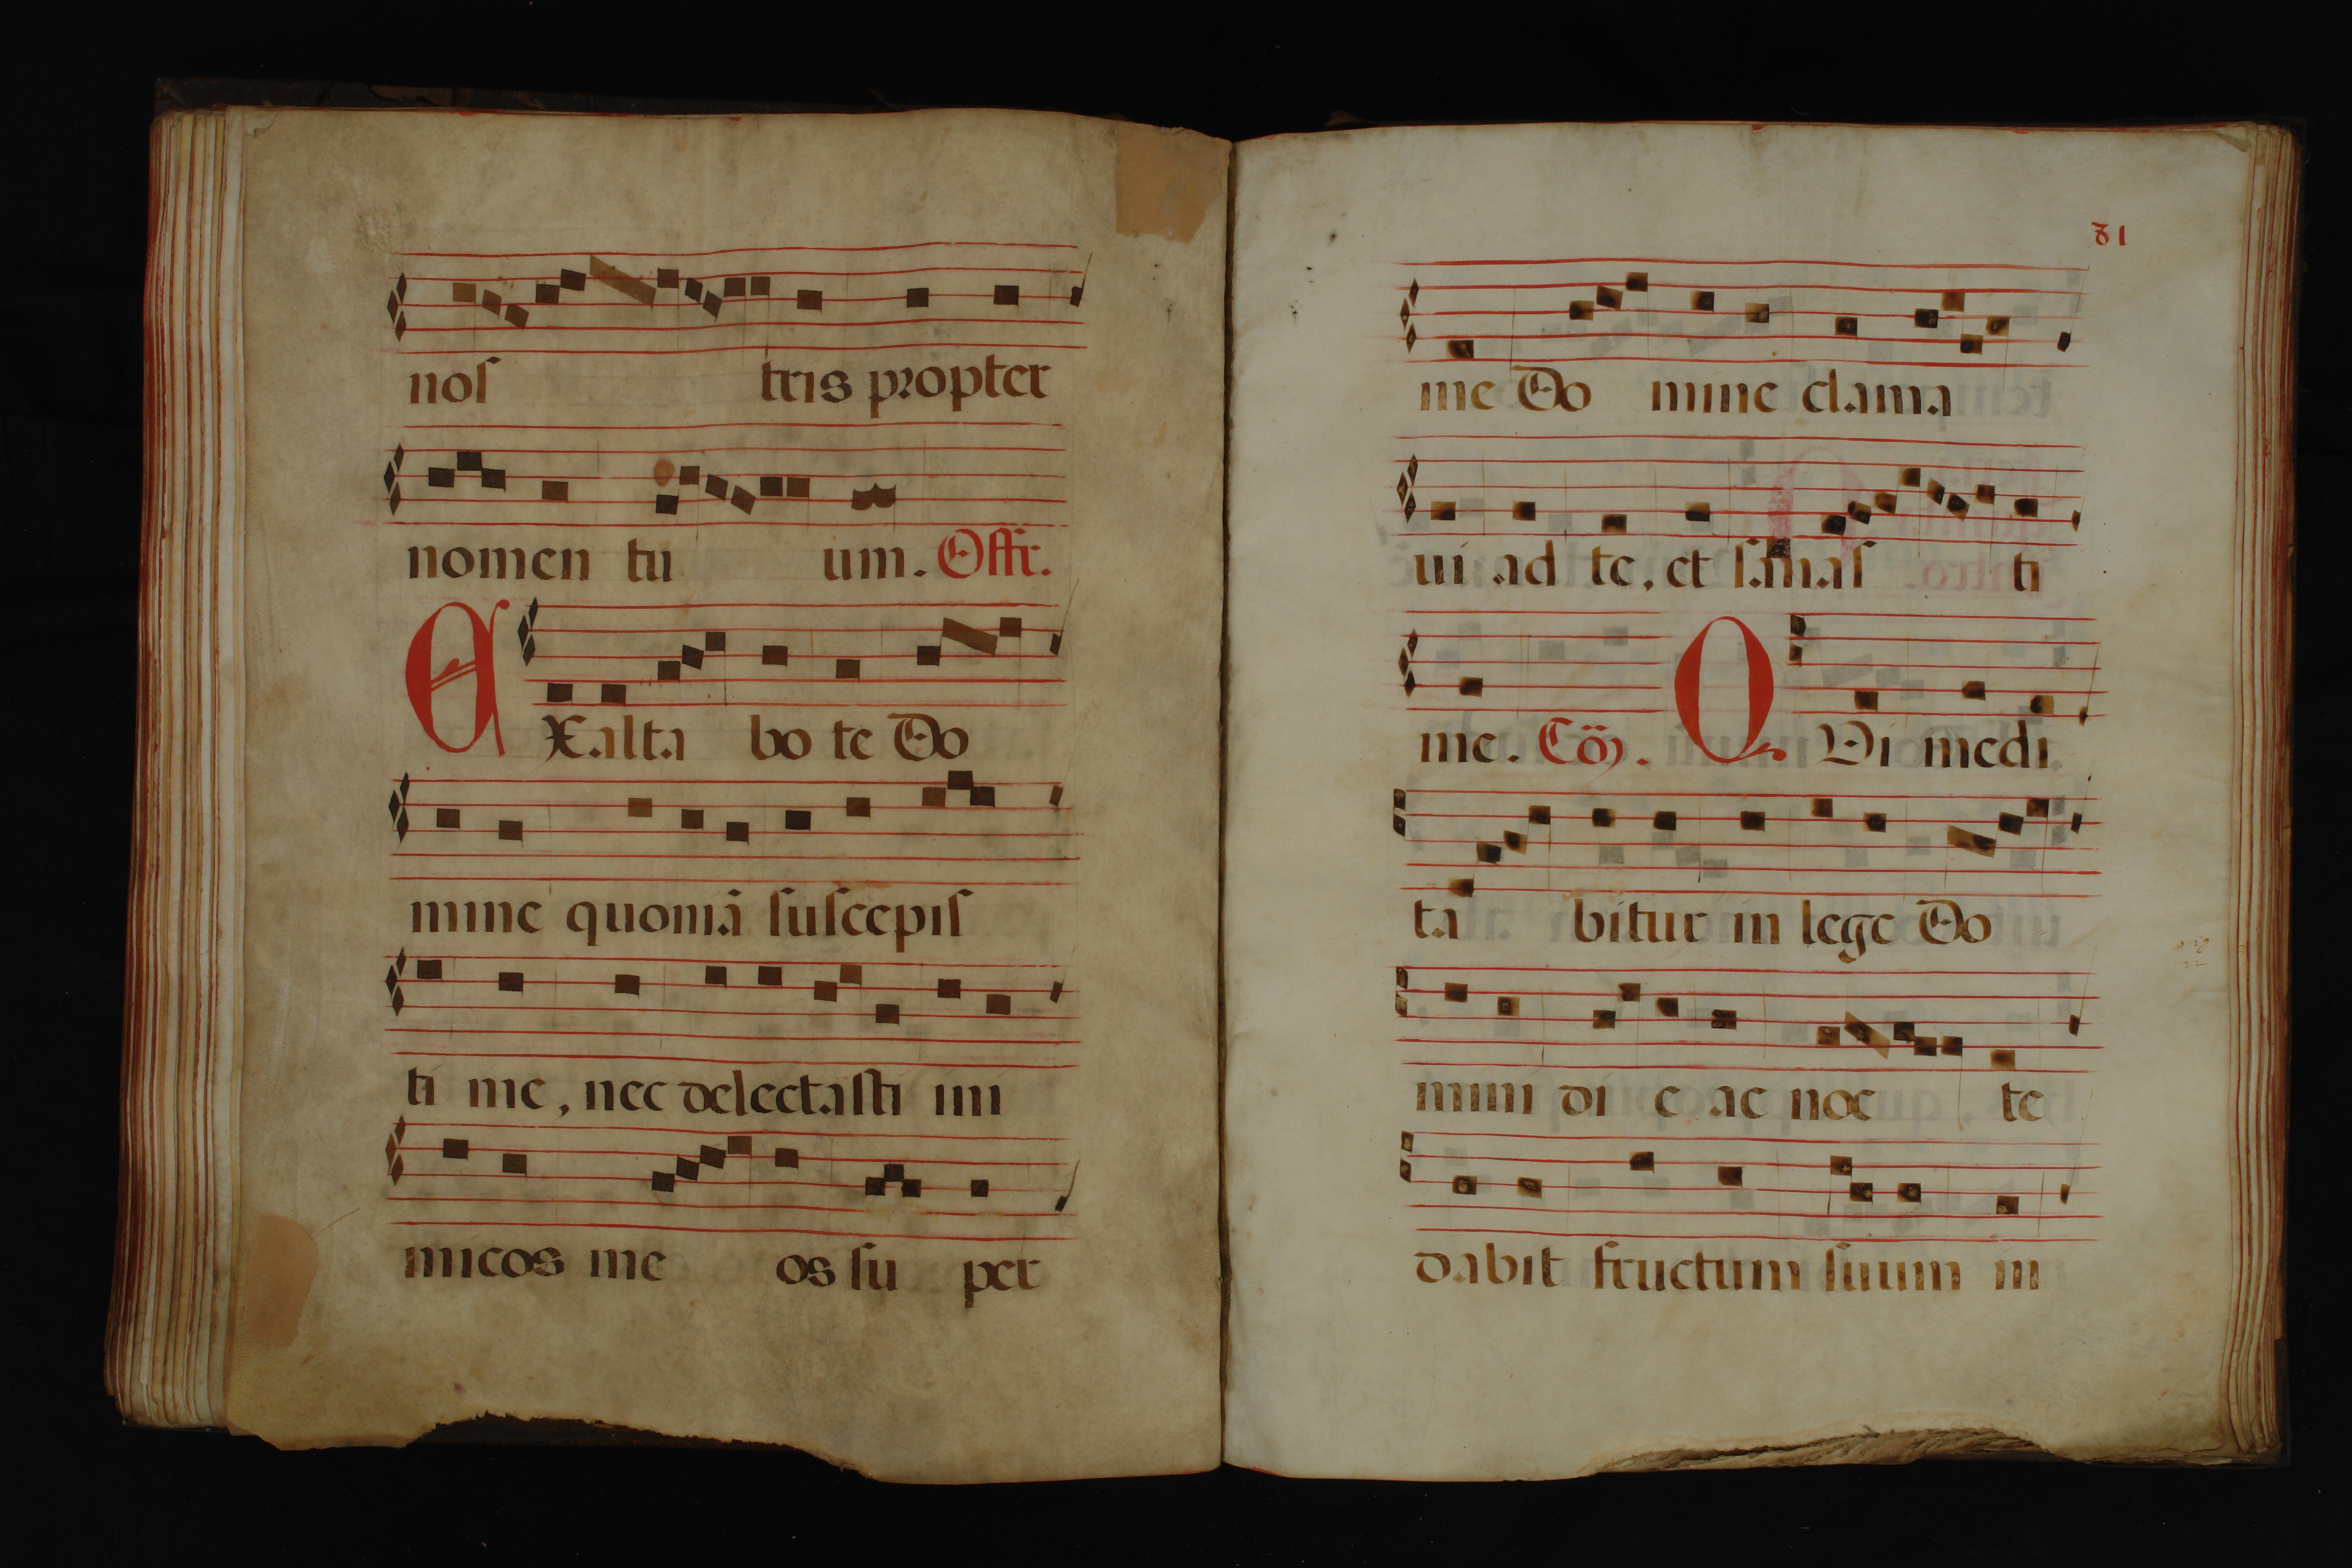 nos tris propter
nomen tu um. Offr.
EXalta bo te Do
mine quoniã suscepis
ti me, nec delectasti ini
micos me os su per
81
me Do mine clama
ui ad te, et sanas ti
me. Cõ. QVi medi
ta bitur in lege Do
mini di e ac noc te
dabit fructum suum in